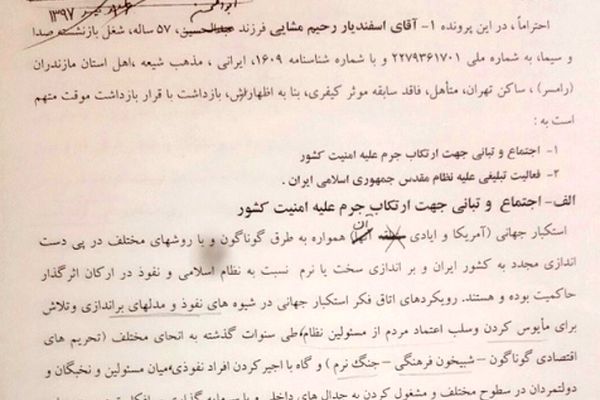 ابوالحسن
۱۳۹۷
احتراماً ، در این پرونده ۱- آقای اسفندیار رحیم مشایی فرزند عبدالحسین، ۵۷ ساله، شغل بازنشسته صدا
و سیما، به شماره ملی ۲۲۷۹۳۶۱۷۰۱ و با شماره شناسنامه ۱۶۰۹، ایرانی ، مذهب شیعه ،اهل استان مازندران
(رامسر) ، ساکن تهران، متأهل، فاقد سابقه موثر کیفری، بنا به اظهارش، بازداشت با قرار بازداشت موقت متهم
است به :
۱- اجتماع و تبانی جهت ارتکاب جرم علیه امنیت کشور
۲- فعالیت تبلیغی علیه نظام مقدس جمهوری اسلامی ایران .
الف- اجتماع و تبانی جهت ارتکاب جرم علیه امنیت کشور
استکبار جهانی (آمریکا و ایادی آن) همواره به طرق گوناگون و با روشهای مختلف در پی دست
اندازی مجدد به کشور ایران و بر اندازی سخت یا نرم نسبت به نظام اسلامی و نفوذ در ارکان اثرگذار
حاکمیت بوده و هستند. رویکردهای اتاق فکر استکبار جهانی در شیوه های نفوذ و مدلهای براندازی وتلاش
برای مأیوس کردن وسلب اعتماد مردم از مسئولین نظام، طی سنوات گذشته به انحای مختلف (تحریم های
اقتصادی گوناگون – شبیخون فرهنگی – جنگ نرم ) و گاه با اجیر کردن افراد نفوذی میان مسئولین و نخبگان و
دولتمردان در سطوح مختلف و مشغول کردن به جدال های داخلی و با سرمایه گذاری